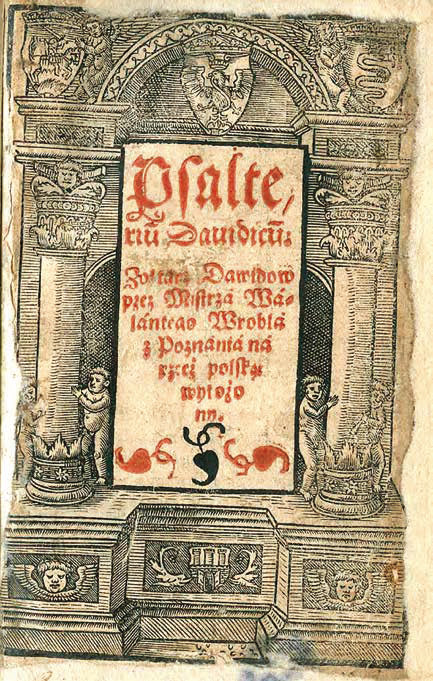 Psalte,
riū Dauidicū:
Zołtarz Dawidow
przez Mistrza Wa-
lantego Wrobla
z Poznania na
rzecz polską
wyłożo
ny.